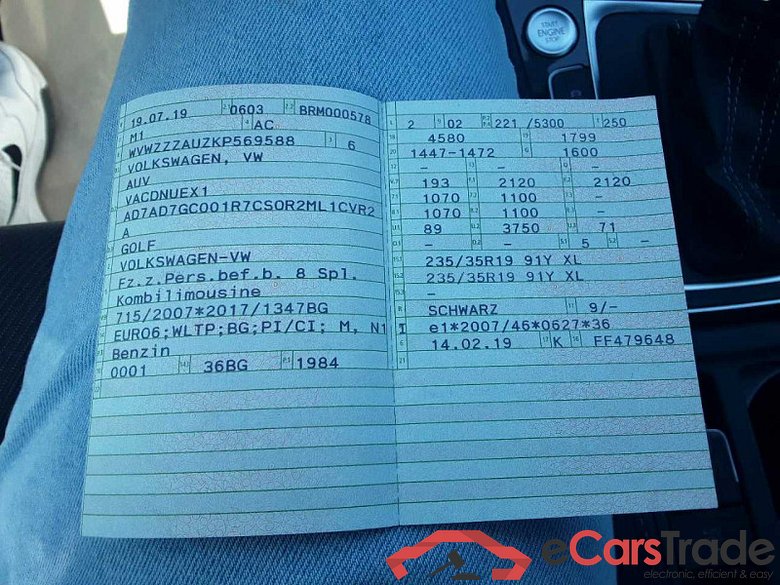 START
ENGINE
STOP
19.07.19 0603 BRM000578
M1 AC
WVWZZZAUZKP569588 6
VOLKSWAGEN, VW
AUV
VACDNUEX1
AD7AD7GC001R7CSOR2ML1CVR2
A
GOLF
VOLKSWAGEN-VW
Fz.z.Pers.bef.b. 8 Spl.
Kombilimousine
715/2007*2017/1347BG
EURO6;WLTP;BG;PI/CI; M, N1 I
Benzin
0001 36BG 1984
2 02 221 /5300 250
4580 1799
1447-1472 1600
- - -
193 2120 2120
1070 1100 -
1070 1100 -
89 3750 71
- - 5 -
235/35R19 91Y XL
235/35R19 91Y XL
-
SCHWARZ 9/-
e1*2007/46*0627*36
14.02.19 K FF479648
eCarsTrade
electronic, efficient & easy